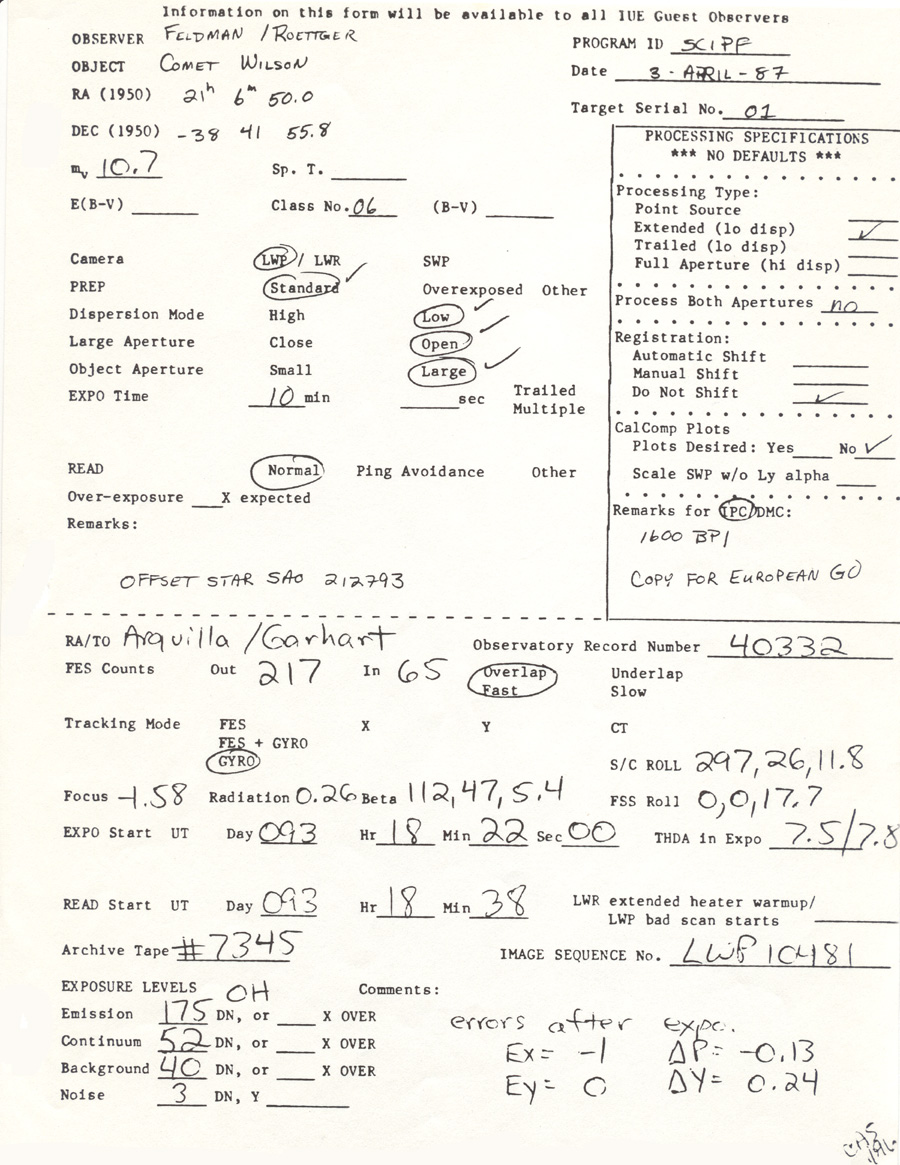 Information on this form will be available to all IUE Guest Observers
OBSERVER FELDMAN / ROETTGER
PROGRAM ID SCIPF
OBJECT COMET WILSON
Date 3-APRIL-87
RA (1950) 21h 6m 50.0
Target Serial No. 01
DEC (1950) -38 41 55.8
mv 10.7 Sp. T.
E(B-V) Class No. 06 (B-V)
Camera LWP / LWR SWP
PREP Standard ✓ Overexposed Other
Dispersion Mode High Low ✓
Large Aperture Close Open ✓
Object Aperture Small Large ✓
EXPO Time 10 min sec Trailed
Multiple
READ Normal Ping Avoidance Other
Over-exposure X expected
Remarks:
OFFSET STAR SAO 212793
PROCESSING SPECIFICATIONS
*** NO DEFAULTS ***
Processing Type:
Point Source
Extended (lo disp) ✓
Trailed (lo disp)
Full Aperture (hi disp)
Process Both Apertures no
Registration:
Automatic Shift
Manual Shift
Do Not Shift ✓
CalComp Plots
Plots Desired: Yes No ✓
Scale SWP w/o Ly alpha
Remarks for IPC/DMC:
1600 BPI
COPY FOR EUROPEAN GO
RA/TO Arquilla / Garhart Observatory Record Number 40332
FES Counts Out 217 In 65 Overlap Underlap
Fast Slow
Tracking Mode FES X Y CT
FES + GYRO
GYRO S/C ROLL 297, 26, 11.8
Focus -1.58 Radiation 0.26 Beta 112, 47, 5.4 FSS Roll 0, 0, 17.7
EXPO Start UT Day 093 Hr 18 Min 22 Sec 00 THDA in Expo 7.5/7.8
READ Start UT Day 093 Hr 18 Min 38 LWR extended heater warmup/
LWP bad scan starts
Archive Tape #7345 IMAGE SEQUENCE No. LWP 10481
EXPOSURE LEVELS OH Comments:
Emission 175 DN, or X OVER
Continuum 52 DN, or X OVER
Background 40 DN, or X OVER
Noise 3 DN, Y
errors after expo.
Ex = -1 ΔP = -0.13
Ey = 0 ΔY = 0.24